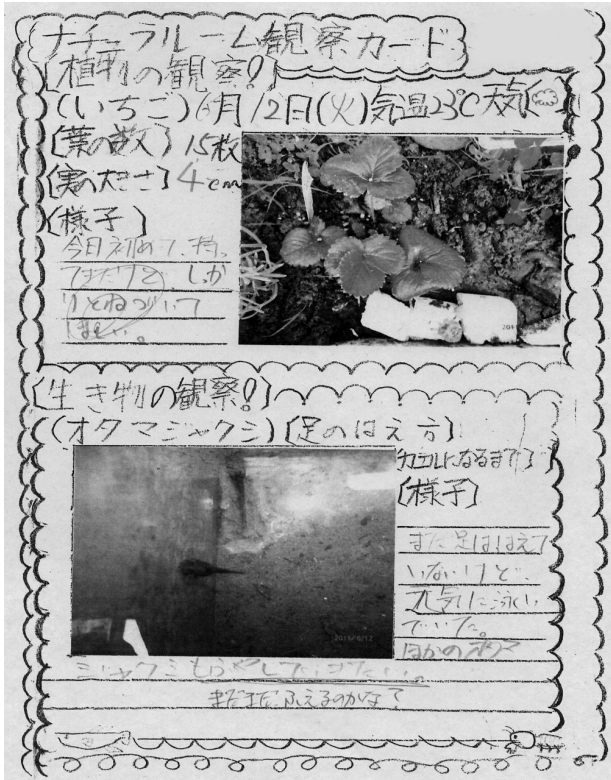 ナチュラルーム観察カード
[植物の観察!]
(いちご)6月12日(火)気温23℃天気
[葉の数]15枚
[実の大きさ]4cm
[様子]
今日初めて、持っ
てきたけど しっか
りとねづいて
ほしい。
[生き物の観察!]
(オタマジャクシ)[足のはえ方]
カエルになるまで]
[様子]
まだ足ははえて
いないけど、
元気に泳い
でいた。
ほかのオタマ
ジャクシも
まだまだふえるのかな?